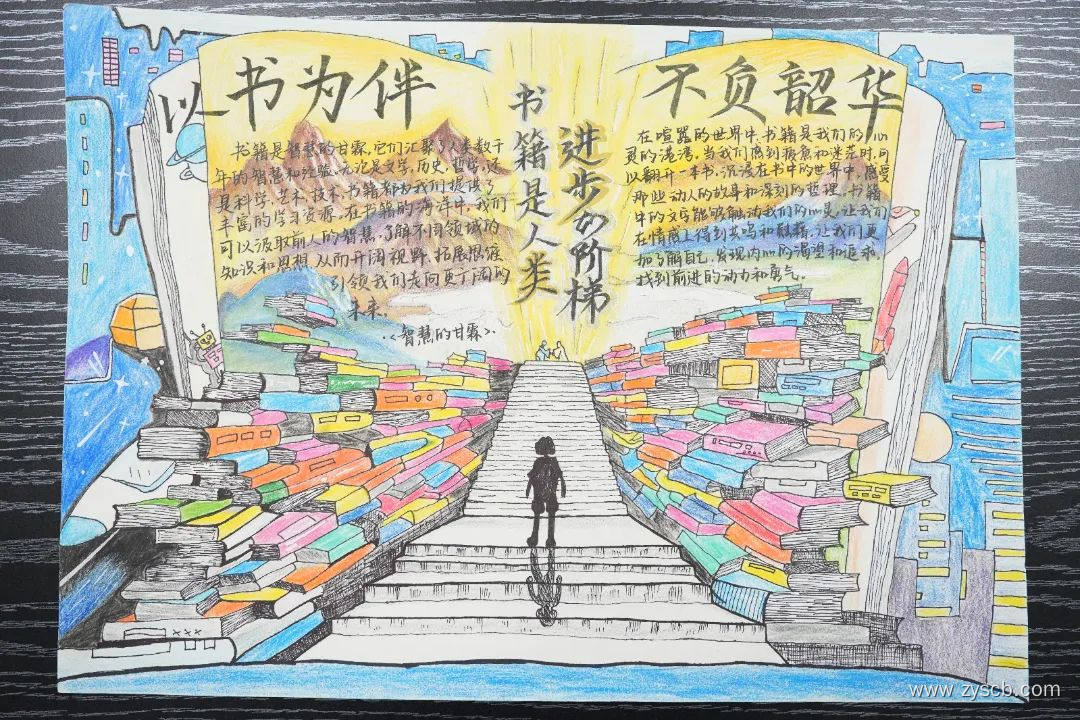 以书为伴
不负韶华
书籍是人类
进步的阶梯
书籍是智慧的甘霖,它们汇聚了人类数千
年的智慧和经验,无论是文学,历史,哲学,还
是科学,艺术,技术,书籍都为我们提供了
丰富的学习资源,在书籍的海洋中,我们
可以汲取前人的智慧,了解不同领域的
知识和思想,从而开阔视野,拓展思维
引领我们走向更广阔的
未来。
《智慧的甘霖》.
在喧嚣的世界中,书籍是我们的心
灵的港湾,当我们感到疲惫和迷茫时,可
以翻开一本书,沉浸在书中的世界中,感受
那些动人的故事和深刻的哲理,书籍
中的文字能够触动我们的心灵,让我们
在情感上得到共鸣和慰藉,让我们更
加了解自己,发现内心的渴望和追求,
找到前进的动力和勇气。
www.zyscb.com